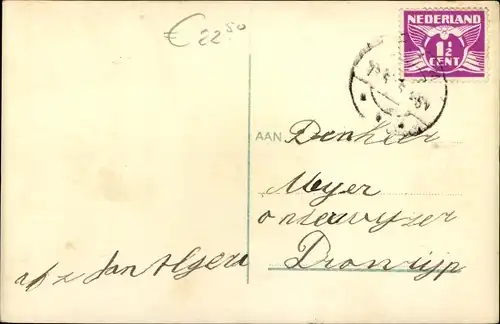 € 22⁵⁰
NEDERLAND
1½
CENT
AAN
Den heer
Meyer
onderwyzer
Dronrijp
afz Jan Algera